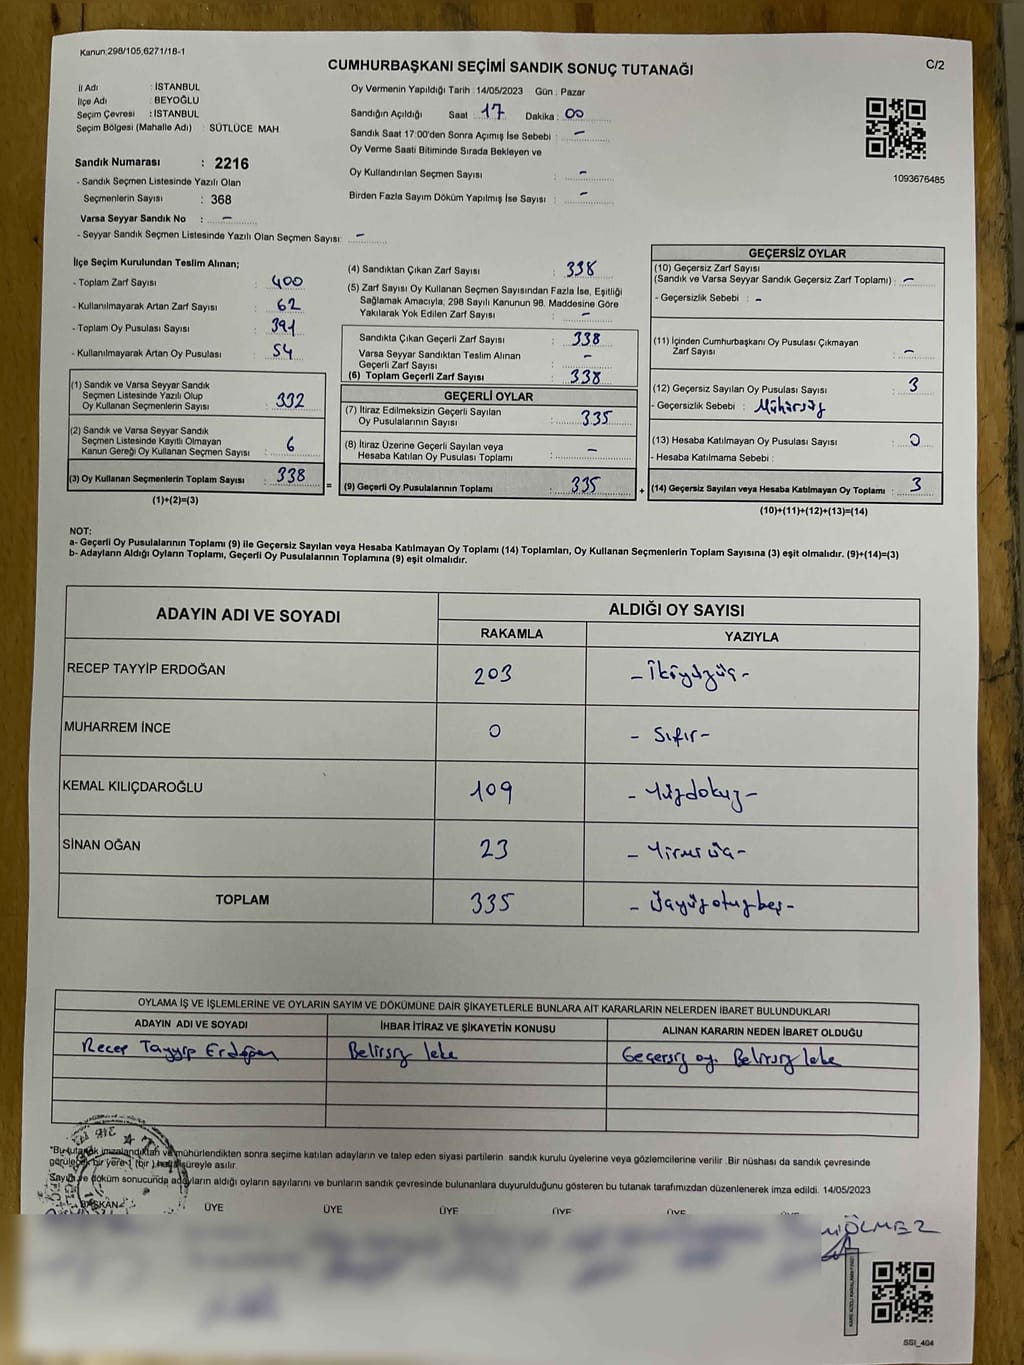 Kanun;298/105,6271/18-1
CUMHURBAŞKANI SEÇİMİ SANDIK SONUÇ TUTANAĞI
C/2
İl Adı : İSTANBUL
İlçe Adı : BEYOĞLU
Seçim Çevresi : İSTANBUL
Seçim Bölgesi (Mahalle Adı) : SÜTLÜCE MAH.
Sandık Numarası : 2216
- Sandık Seçmen Listesinde Yazılı Olan
Seçmenlerin Sayısı : 368
Varsa Seyyar Sandık No : -
- Seyyar Sandık Seçmen Listesinde Yazılı Olan Seçmen Sayısı: -
Oy Vermenin Yapıldığı Tarih : 14/05/2023 Gün : Pazar
Sandığın Açıldığı Saat : 17 Dakika : 00
Sandık Saat 17:00'den Sonra Açımış İse Sebebi : -
Oy Verme Saati Bitiminde Sırada Bekleyen ve
Oy Kullandırılan Seçmen Sayısı : -
Birden Fazla Sayım Döküm Yapılmış İse Sayısı : -
1093676485
İlçe Seçim Kurulundan Teslim Alınan;
- Toplam Zarf Sayısı : 400
- Kullanılmayarak Artan Zarf Sayısı : 62
- Toplam Oy Pusulası Sayısı : 391
- Kullanılmayarak Artan Oy Pusulası : 54
(1) Sandık ve Varsa Seyyar Sandık
Seçmen Listesinde Yazılı Olup
Oy Kullanan Seçmenlerin Sayısı : 332
(2) Sandık ve Varsa Seyyar Sandık
Seçmen Listesinde Kayıtlı Olmayan
Kanun Gereği Oy Kullanan Seçmen Sayısı : 6
(3) Oy Kullanan Seçmenlerin Toplam Sayısı : 338
(1)+(2)=(3)
(4) Sandıktan Çıkan Zarf Sayısı : 338
(5) Zarf Sayısı Oy Kullanan Seçmen Sayısından Fazla İse, Eşitliği
Sağlamak Amacıyla, 298 Sayılı Kanunun 98. Maddesine Göre
Yakılarak Yok Edilen Zarf Sayısı : -
Sandıkta Çıkan Geçerli Zarf Sayısı : 338
Varsa Seyyar Sandıktan Teslim Alınan
Geçerli Zarf Sayısı : -
(6) Toplam Geçerli Zarf Sayısı : 338
GEÇERLİ OYLAR
(7) İtiraz Edilmeksizin Geçerli Sayılan
Oy Pusulalarının Sayısı : 335
(8) İtiraz Üzerine Geçerli Sayılan veya
Hesaba Katılan Oy Pusulası Toplamı : -
= (9) Geçerli Oy Pusulalarının Toplamı : 335
GEÇERSİZ OYLAR
(10) Geçersiz Zarf Sayısı
(Sandık ve Varsa Seyyar Sandık Geçersiz Zarf Toplamı) : -
- Geçersizlik Sebebi : -
(11) İçinden Cumhurbaşkanı Oy Pusulası Çıkmayan
Zarf Sayısı : -
(12) Geçersiz Sayılan Oy Pusulası Sayısı : 3
- Geçersizlik Sebebi : Mühürsüz
(13) Hesaba Katılmayan Oy Pusulası Sayısı : 0
- Hesaba Katılmama Sebebi :
+ (14) Geçersiz Sayılan veya Hesaba Katılmayan Oy Toplamı : 3
(10)+(11)+(12)+(13)=(14)
NOT:
a- Geçerli Oy Pusulalarının Toplamı (9) ile Geçersiz Sayılan veya Hesaba Katılmayan Oy Toplamı (14) Toplamları, Oy Kullanan Seçmenlerin Toplam Sayısına (3) eşit olmalıdır. (9)+(14)=(3)
b- Adayların Aldığı Oyların Toplamı, Geçerli Oy Pusulalarının Toplamına (9) eşit olmalıdır.
ADAYIN ADI VE SOYADI ALDIĞI OY SAYISI
RAKAMLA YAZIYLA
RECEP TAYYİP ERDOĞAN 203 - İkiyüzüç -
MUHARREM İNCE 0 - Sıfır -
KEMAL KILIÇDAROĞLU 109 - Yüzdokuz -
SİNAN OĞAN 23 - Yirmiüç -
TOPLAM 335 - Üçyüzotuzbeş -
OYLAMA İŞ VE İŞLEMLERİNE VE OYLARIN SAYIM VE DÖKÜMÜNE DAİR ŞİKAYETLERLE BUNLARA AİT KARARLARIN NELERDEN İBARET BULUNDUKLARI
ADAYIN ADI VE SOYADI İHBAR İTİRAZ VE ŞİKAYETİN KONUSU ALINAN KARARIN NEDEN İBARET OLDUĞU
Recep Tayyip Erdoğan Belirsiz leke Geçersiz oy. Belirsiz leke
*Bu tutanak imzalandıktan ve mühürlendikten sonra seçime katılan adayların ve talep eden siyasi partilerin sandık kurulu üyelerine veya gözlemcilerine verilir. Bir nüshası da sandık çevresinde
görülecek bir yere 1 (bir) hafta süreyle asılır.
Sayım ve döküm sonucunda adayların aldığı oyların sayılarını ve bunların sandık çevresinde bulunanlara duyurulduğunu gösteren bu tutanak tarafımızdan düzenlenerek imza edildi. 14/05/2023
BAŞKAN ÜYE ÜYE ÜYE ÜYE ÜYE
ÖLMEZ
SSİ_404